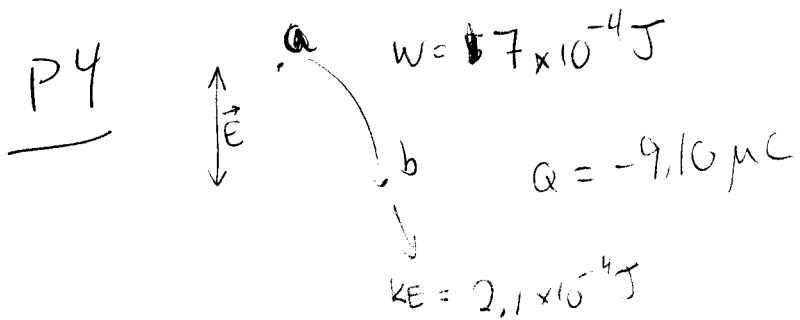 P4
a
W = 7 × 10⁻⁴ J
E⃗
b
Q = -9.10 μC
KE = 2.1 × 10⁻⁴ J